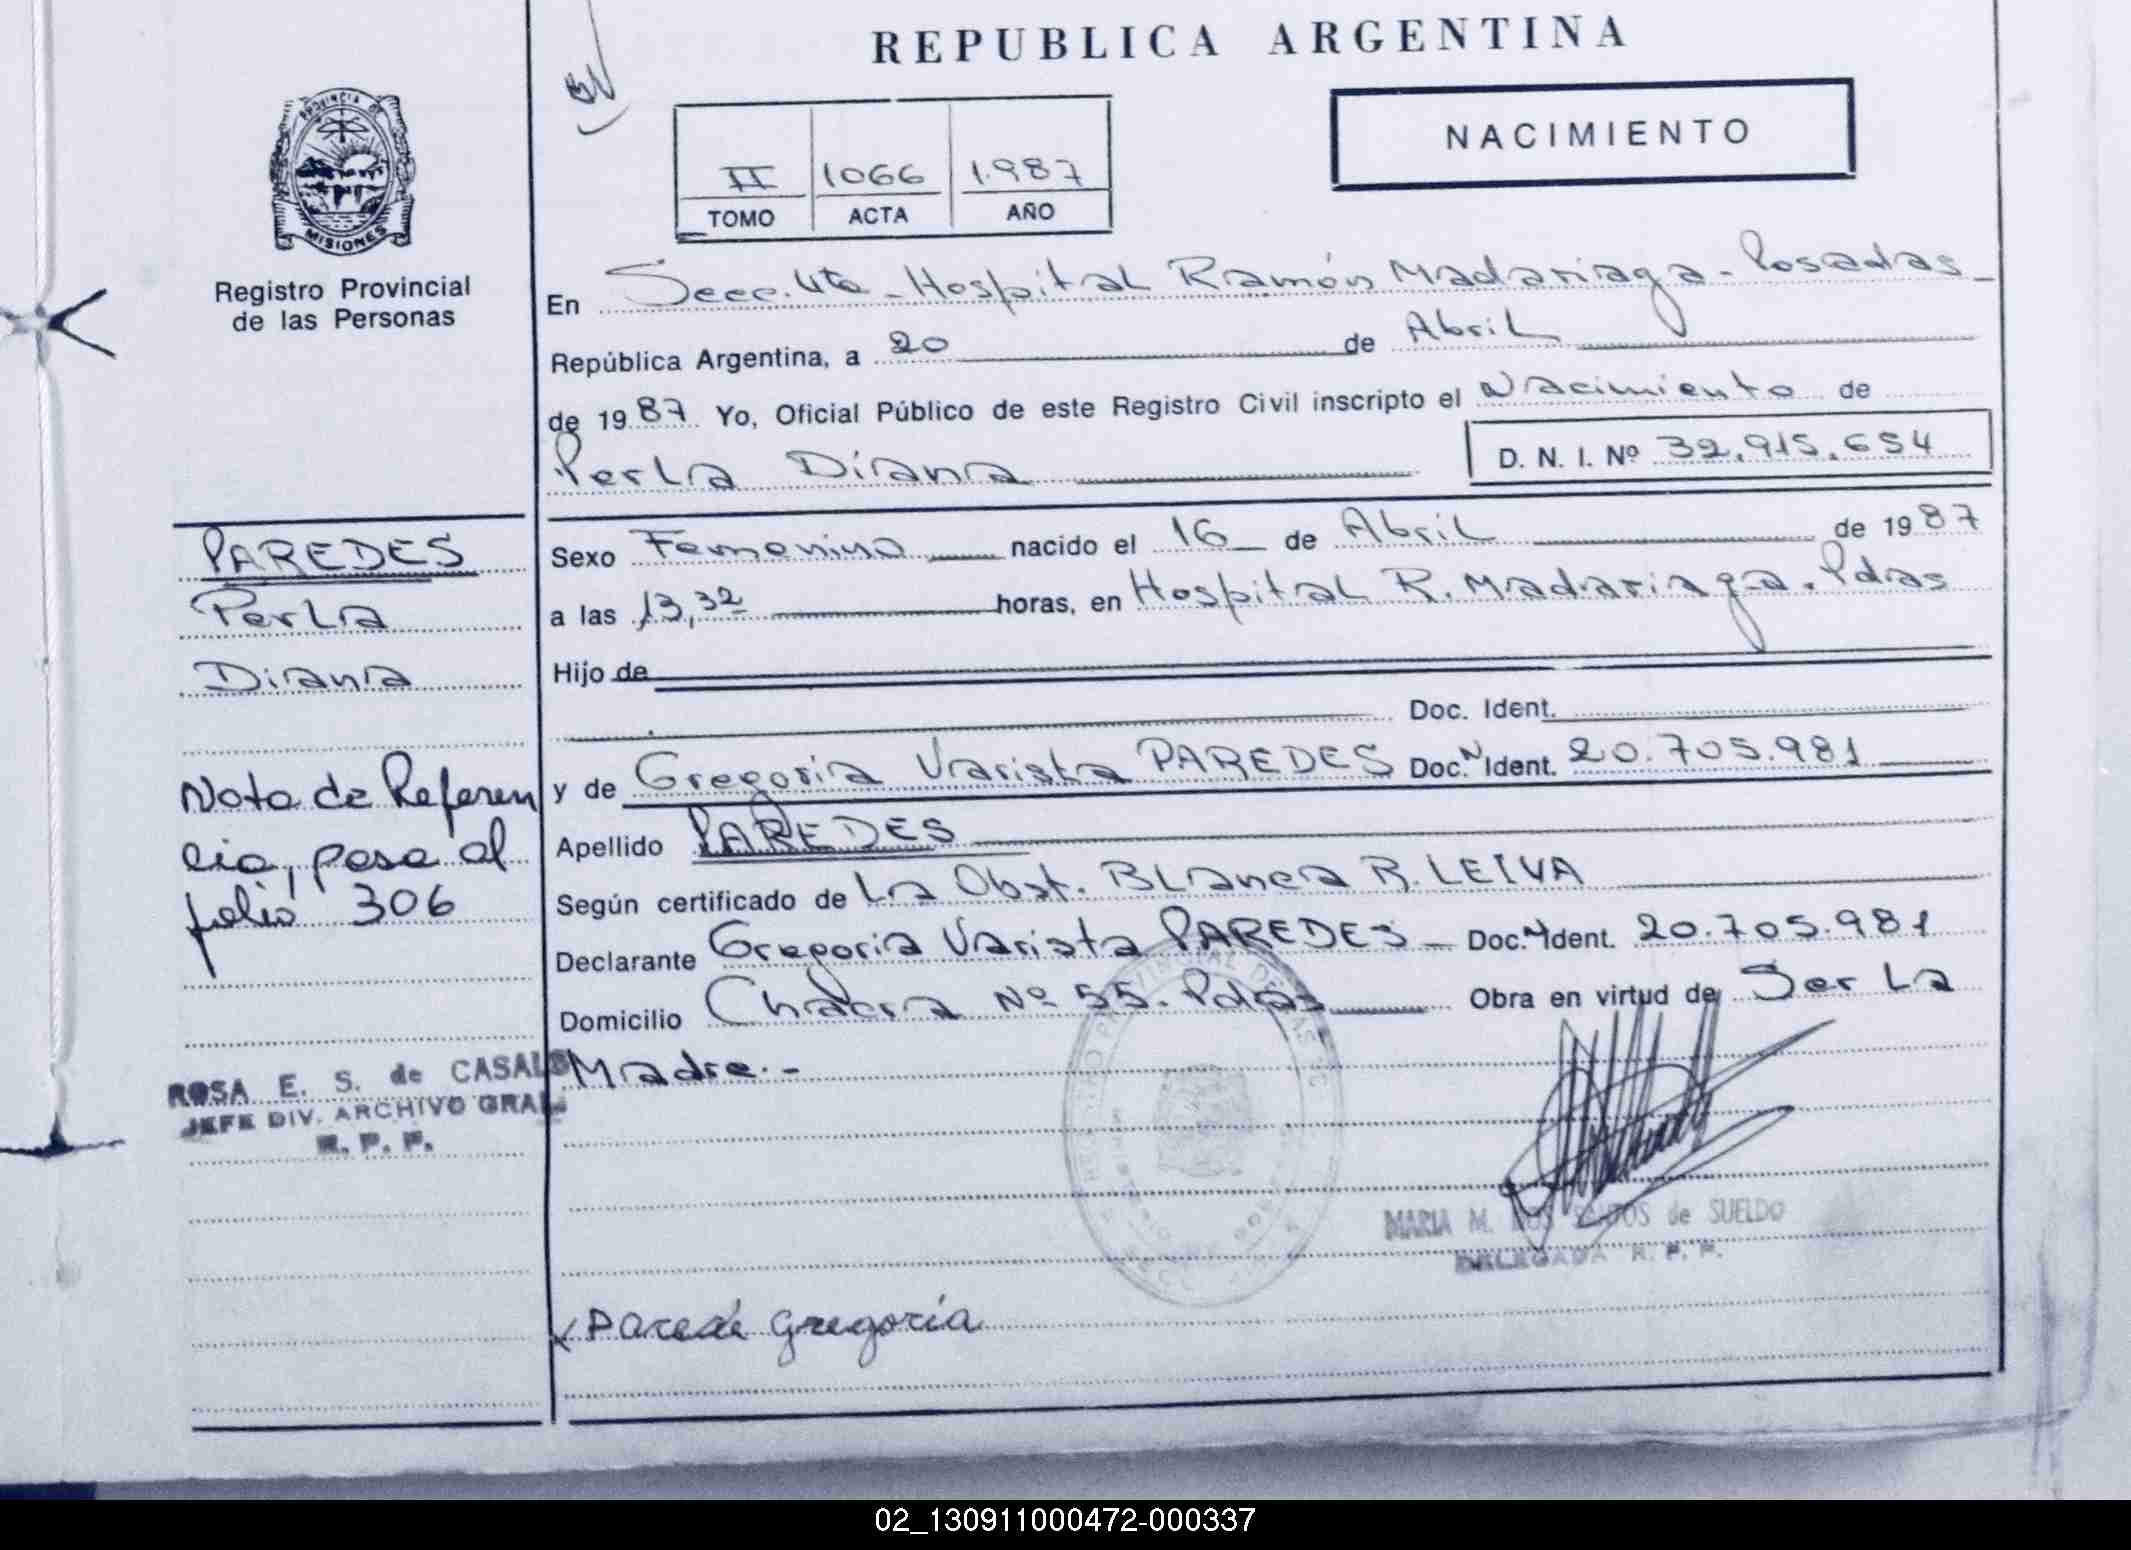 REPUBLICA ARGENTINA
NACIMIENTO
II 1066 1.987
TOMO ACTA AÑO
PROVINCIA DE
MISIONES
Registro Provincial
de las Personas
En Secc. 4ta - Hospital Ramón Madariaga - Posadas -
República Argentina, a 20 de Abril
de 1987 Yo, Oficial Público de este Registro Civil inscripto el Nacimiento de
Perla Diana D. N. I. Nº 32.915.654
Sexo Femenino nacido el 16 de Abril de 1987
a las 13,32 horas, en Hospital R. Madariaga. Pdas
Hijo de
Doc. Ident.
y de Gregoria Varista PAREDES Doc. N Ident. 20.705.981
Apellido PAREDES
Según certificado de La Obst. Blanca R. LEIVA
Declarante Gregoria Varista PAREDES - Doc. N Ident. 20.705.981
Domicilio Chacra Nº 55. Pdas Obra en virtud de Ser La
Madre.-
MARIA M. DOS SANTOS de SUELDO
DELEGADA R. P. P.
Paredé Gregoria
PAREDES
Perla
Diana
Nota de Referen
cia, pasa al
folio 306
ROSA E. S. de CASALS
JEFE DIV. ARCHIVO GRAL.
R. P. P.
02_130911000472-000337